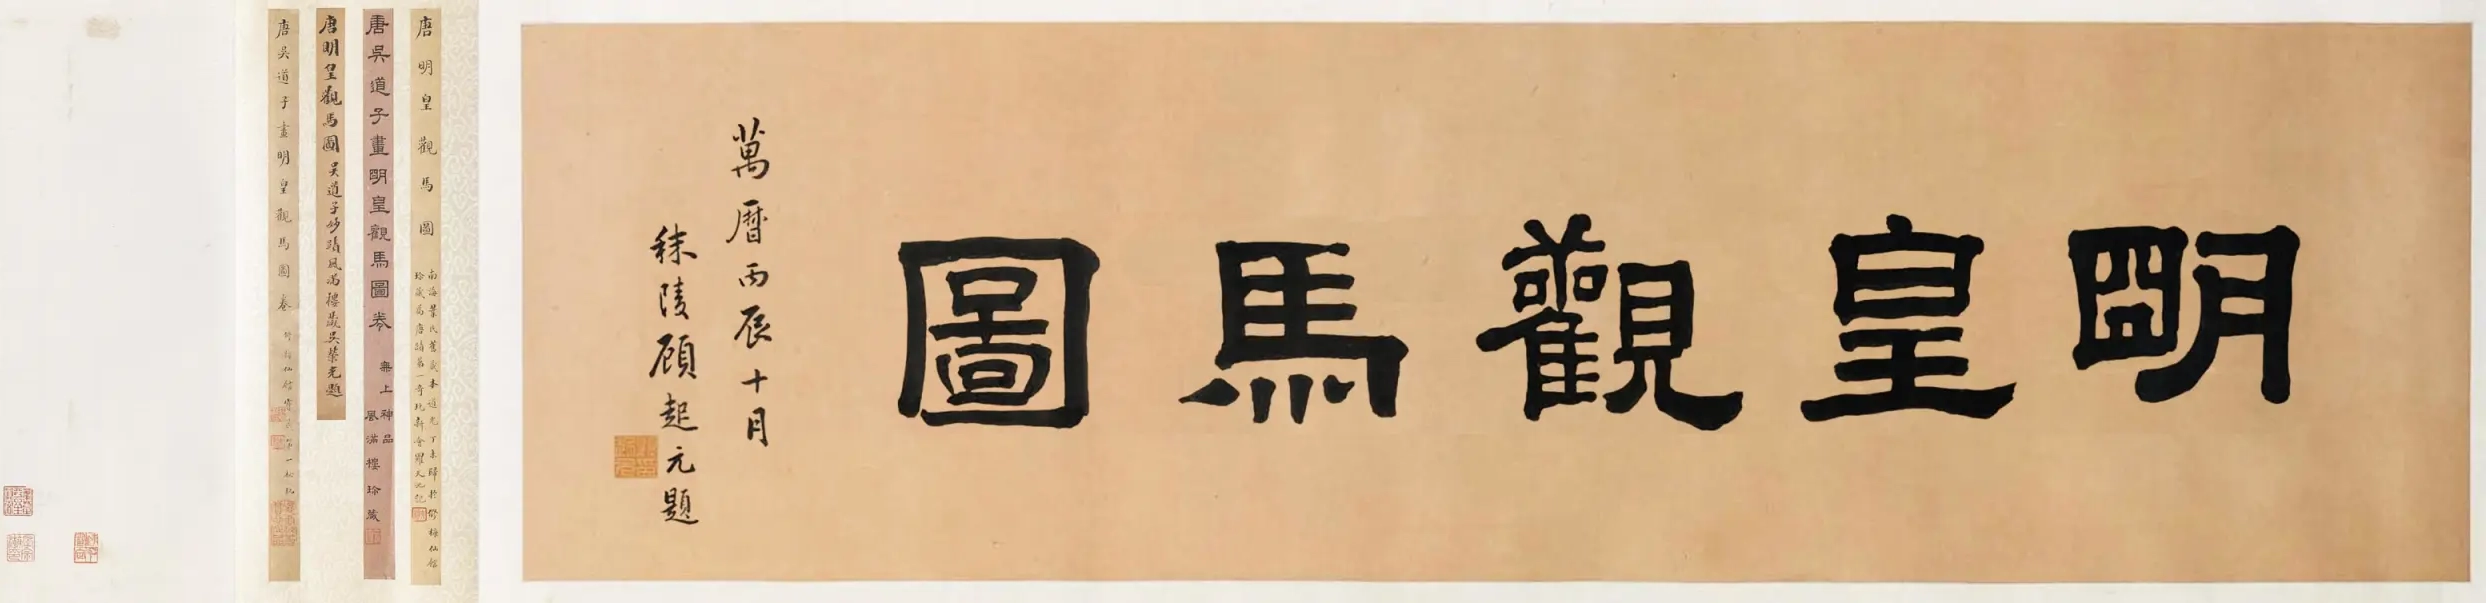 明皇觀馬圖
萬曆丙辰十月
秣陵顧起元題
唐明皇觀馬圖
南海葉氏舊藏本道光丁未歸於修梅仙館
珍藏為唐蹟第一奇玩新會羅天池記
唐吳道子畫明皇觀馬圖卷
無上神品
風滿樓珍藏
唐明皇觀馬圖 吳道子妙蹟風滿樓藏吳榮光題
唐吳道子畫明皇觀馬圖卷